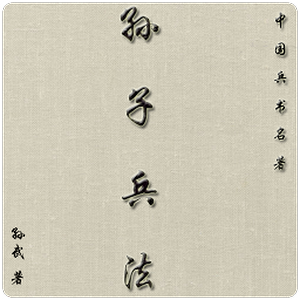 中国兵书名著
孙子兵法
孙武 著